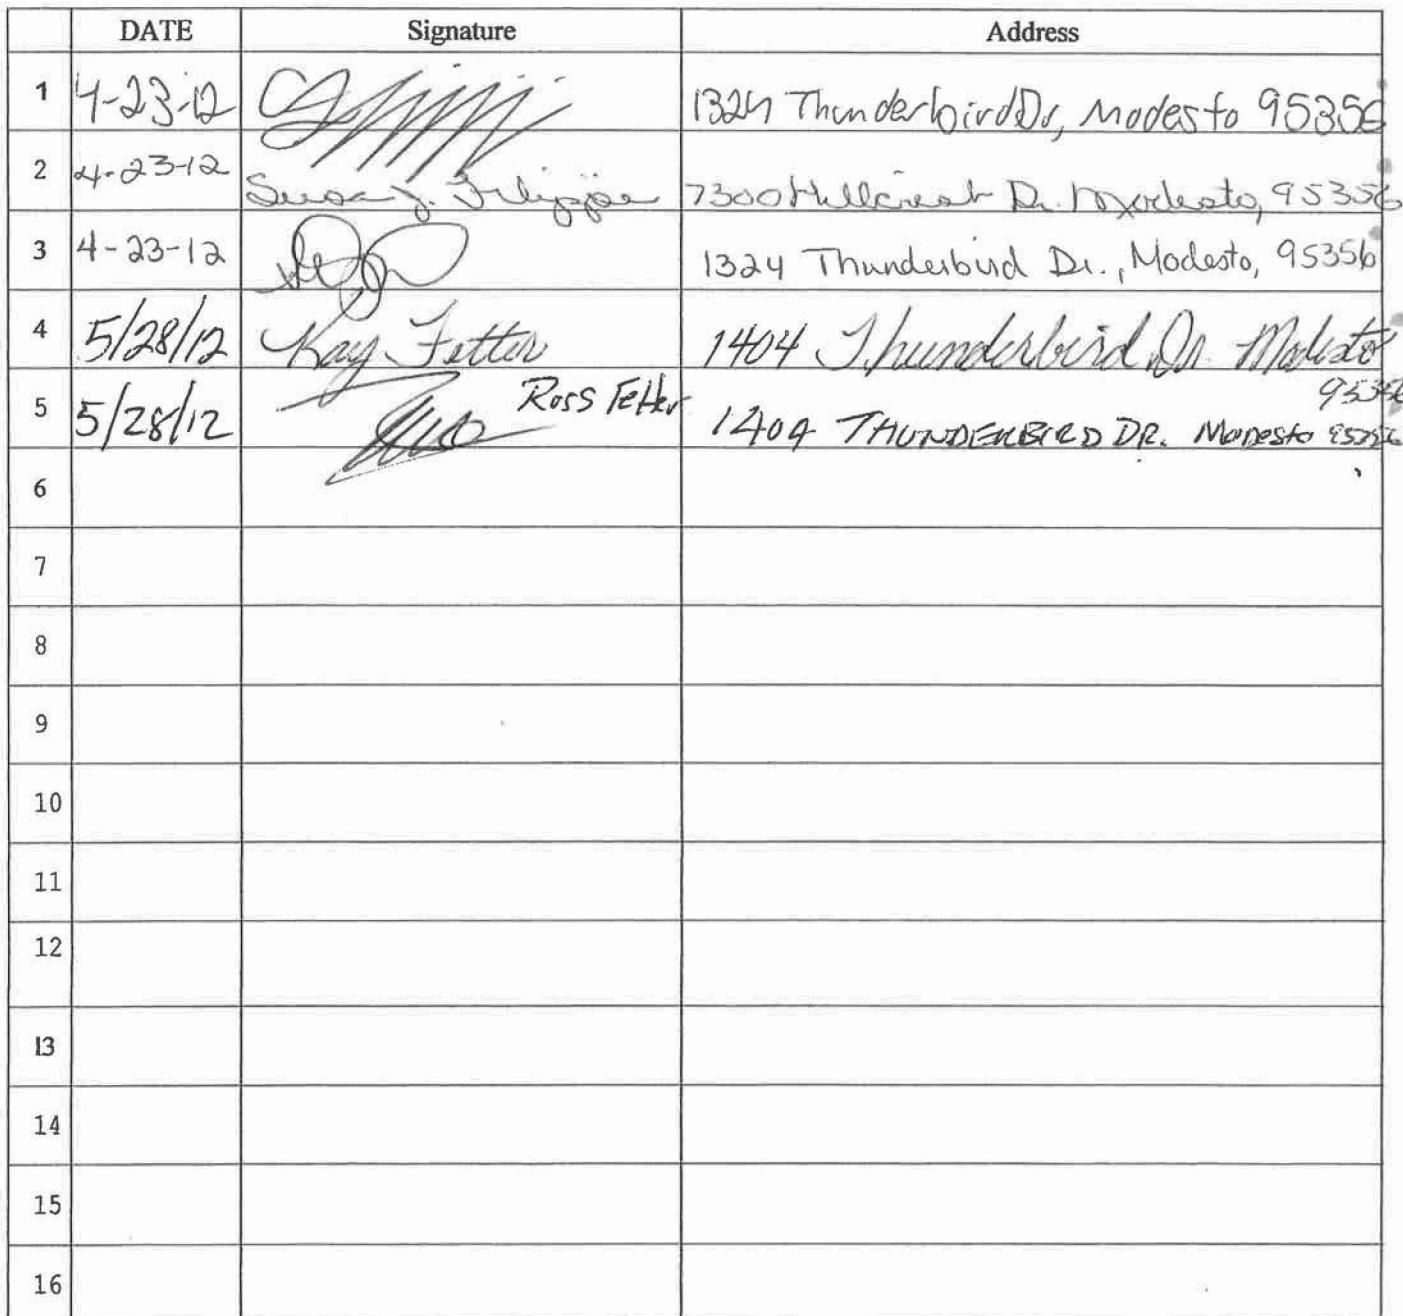 DATE Signature Address
1 4-23-12 1324 Thunderbird Dr, Modesto 95356
2 4-23-12 Susan J. Filippe 7300 Hillcrest Dr. Modesto, 95356
3 4-23-12 1324 Thunderbird Dr., Modesto, 95356
4 5/28/12 Kay Fetter 1404 Thunderbird Dr. Modesto
95356
5 5/28/12 Ross Fetter 1404 THUNDERBIRD DR. Modesto 95356
6
7
8
9
10
11
12
13
14
15
16